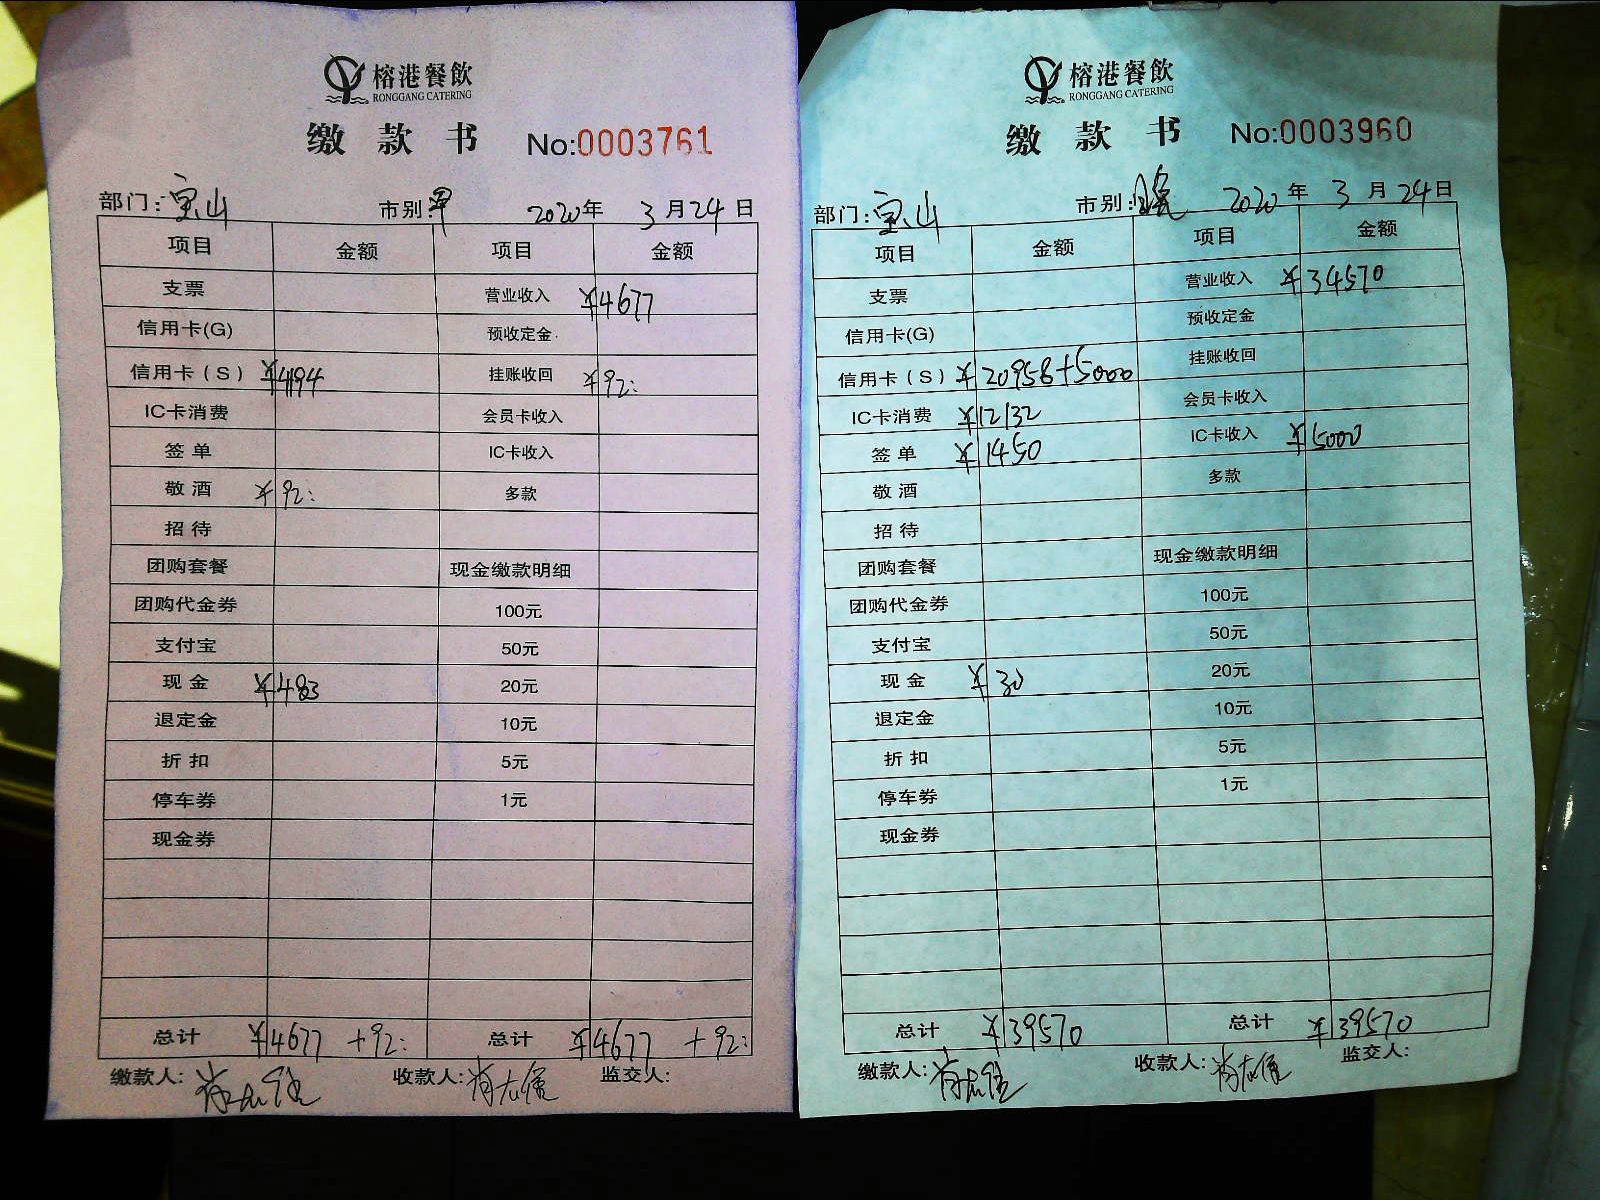 榕港餐飲
RONGGANG CATERING
缴 款 书 No:0003761
部门:宝山 市别:早 2020年 3月24日
项目 金额 项目 金额
支票 营业收入 ¥4677
信用卡(G) 预收定金
信用卡(S) ¥4194 挂账收回 ¥92:
IC卡消费 会员卡收入
签 单 IC卡收入
敬 酒 ¥92: 多款
招 待
团购套餐 现金缴款明细
团购代金券 100元
支付宝 50元
现 金 ¥483 20元
退定金 10元
折 扣 5元
停车券 1元
现金券
总计 ¥4677 +92: 总计 ¥4677 +92:
缴款人: 收款人: 监交人:
榕港餐飲
RONGGANG CATERING
缴 款 书 No:0003960
部门:宝山 市别:晚 2020年 3月24日
项目 金额 项目 金额
支票 营业收入 ¥34570
信用卡(G) 预收定金
信用卡(S) ¥20958+5000 挂账收回
IC卡消费 ¥12132 会员卡收入
签 单 ¥1450 IC卡收入 ¥5000
敬 酒 多款
招 待
团购套餐 现金缴款明细
团购代金券 100元
支付宝 50元
现 金 ¥30 20元
退定金 10元
折 扣 5元
停车券 1元
现金券
总计 ¥39570 总计 ¥39570
缴款人: 收款人: 监交人: